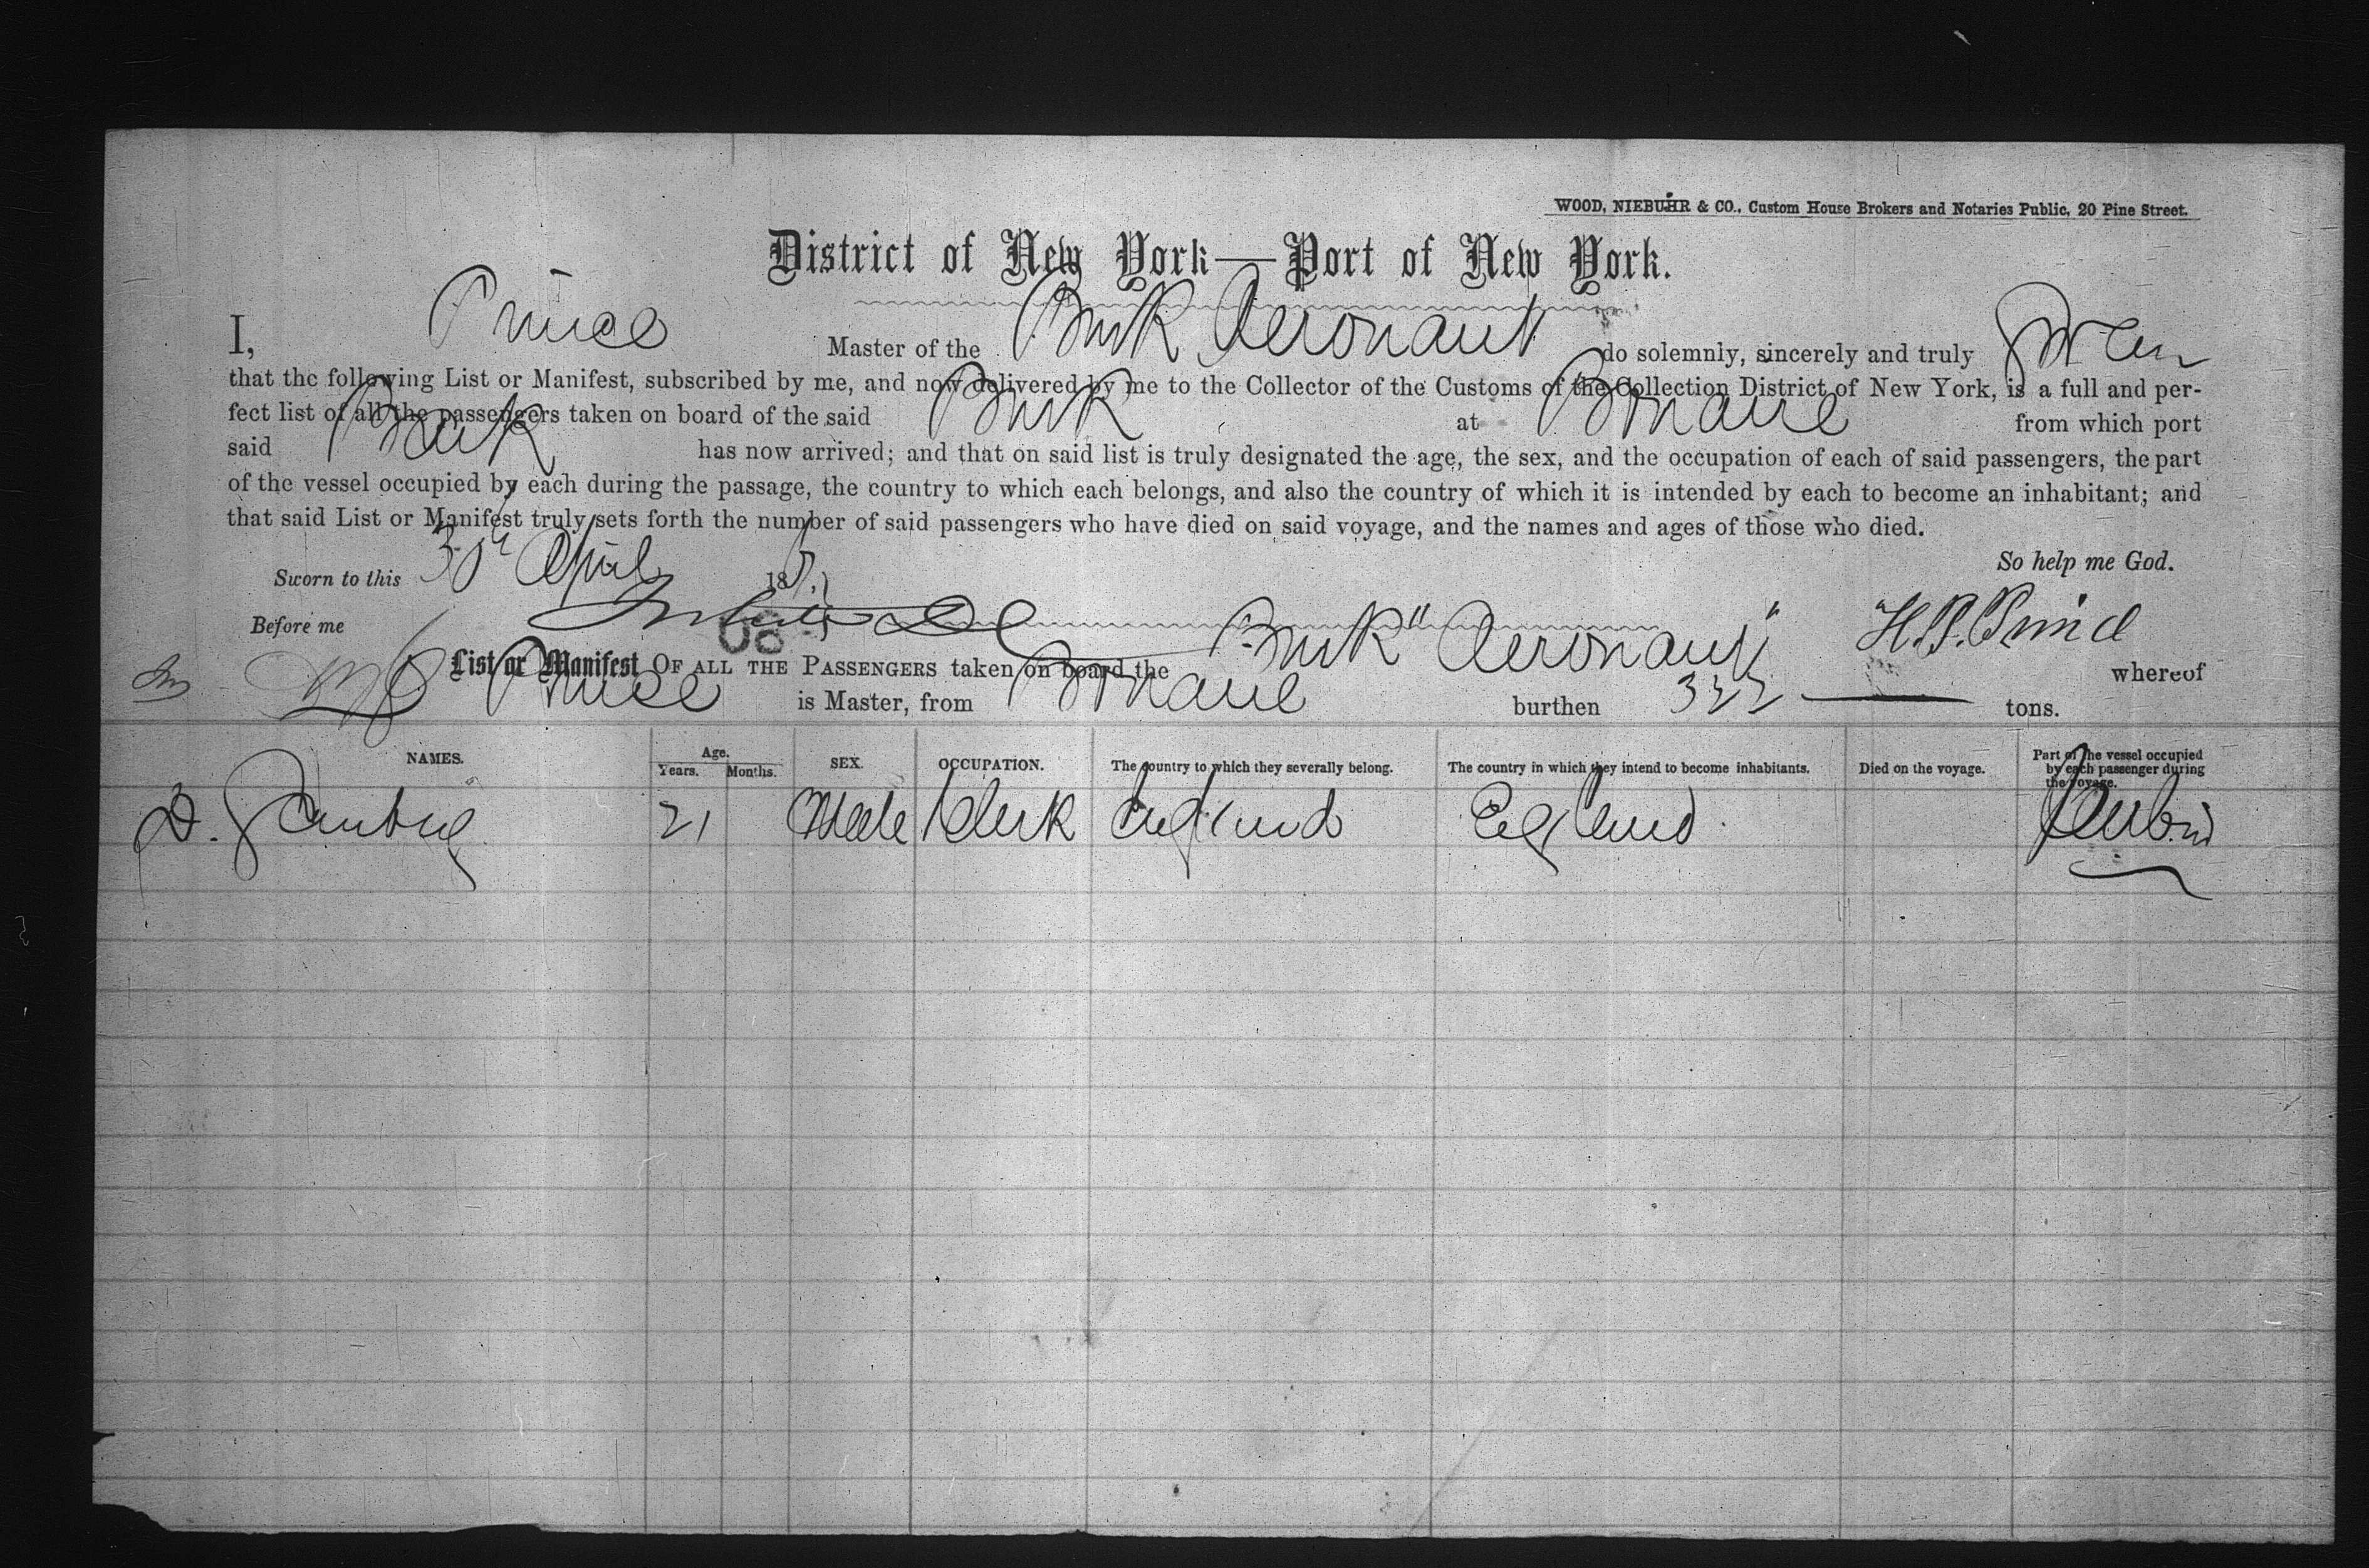 WOOD, NIEBUHR & CO., Custom House Brokers and Notaries Public, 20 Pine Street.
District of New York—Port of New York.
I, Prince Master of the Bark Aeronaut do solemnly, sincerely and truly swear
that the following List or Manifest, subscribed by me, and now delivered by me to the Collector of the Customs of the Collection District of New York, is a full and per-
fect list of all the passengers taken on board of the said Bark at Bonaire from which port
said Bark has now arrived; and that on said list is truly designated the age, the sex, and the occupation of each of said passengers, the part
of the vessel occupied by each during the passage, the country to which each belongs, and also the country of which it is intended by each to become an inhabitant; and
that said List or Manifest truly sets forth the number of said passengers who have died on said voyage, and the names and ages of those who died.
So help me God.
Sworn to this 30th April 18
Before me H. Prince
List or Manifest OF ALL THE PASSENGERS taken on board the Bark "Aeronaut" whereof
Prince is Master, from Bonaire burthen 322 tons.
NAMES. Age. Years. Months. SEX. OCCUPATION. The country to which they severally belong. The country in which they intend to become inhabitants. Died on the voyage. Part of the vessel occupied by each passenger during the voyage.
D. 21 Male Clerk England England Cabin